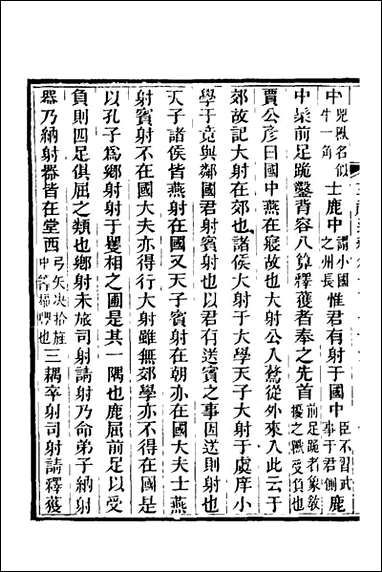 中兕獸名似牛一角士鹿中謂小國之州長惟君有射于國中臣不習武事于君側鹿
中髤前足跪鑿背容八算釋獲者奉之先首前足跪者象教擾之獸受負也
賈公彥曰國中燕在寢故也大射公入驁從外來入此云于
郊故記大射在郊也諸侯大射于大學天子大射于虞庠小
學于竟與鄰國君射賓射也以君有送賓之事因送則射也
天子諸侯皆燕射在國又天子賓射在朝亦在國大夫士燕
射賓射不在國大夫亦得行大射雖無郊學亦不得在國是
以孔子爲鄉射射于矍相之圃是其一隅也鹿屈前足以受
負則四足俱屈之類也鄉射未旅司射請射乃命弟子納射
器乃納射器皆在堂西弓矢決拾旌中籌楅豐也三耦卒射司射請釋獲